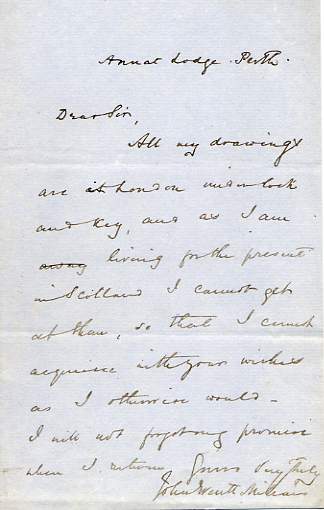 Annat Lodge. Perth.
Dear Sir,
All my drawings
are at London under lock
and key, and as I am
away living for the present
in Scotland I cannot get
at them, so that I cannot
acquiesce with your wishes
as I otherwise would –
I will not forget my promise
when I return Yours Very Truly
John Everett Millais